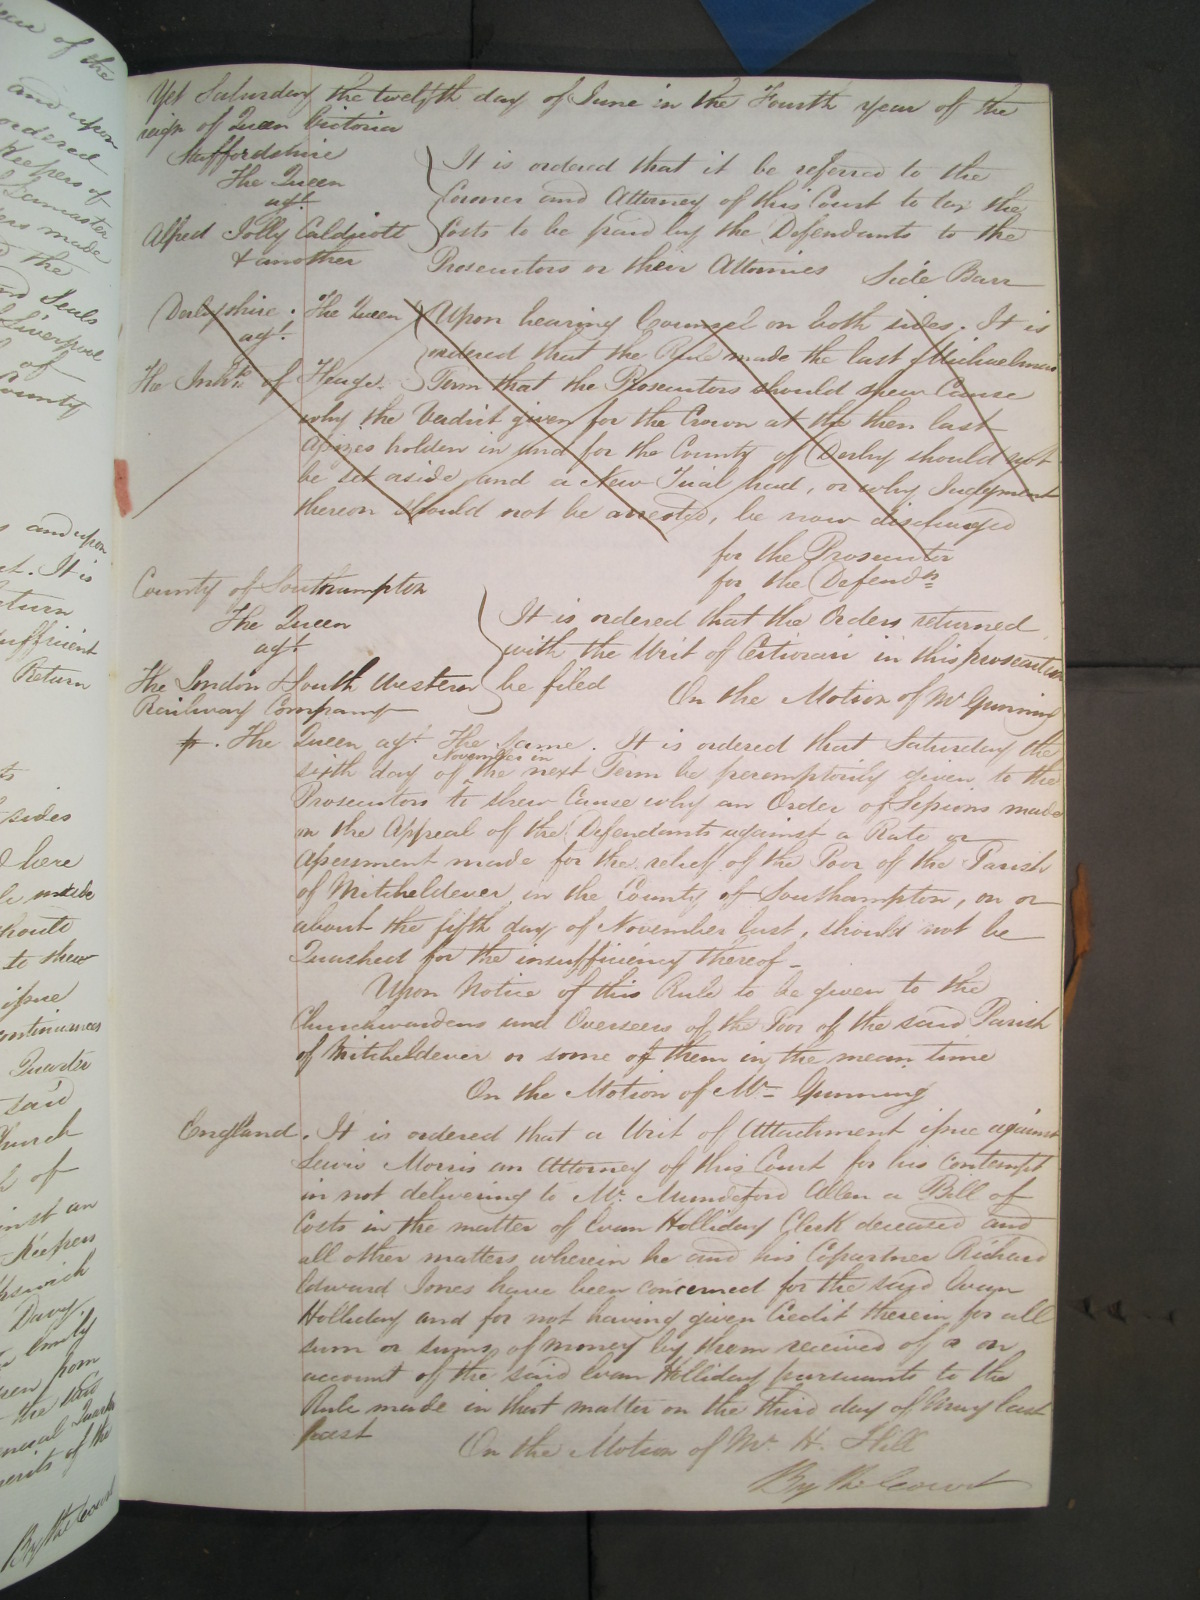 Yet Saturday the twelfth day of June in the Fourth year of the
reign of Queen Victoria
Staffordshire
The Queen
agt
Alfred Jolly Caldicott
& another
It is ordered that it be referred to the
Coroner and Attorney of this Court to tax the
Costs to be paid by the Defendants to the
Prosecutors or their Attornies Side Barr
Derbyshire. The Queen
agt.
The Inhts. of Heage.
Upon hearing Counsel on both sides. It is
ordered that the Rule made the last Michaelmas
Term that the Prosecutors should shew Cause
why the Verdict given for the Crown at the then last
Assizes holden in and for the County of Derby should not
be set aside and a New Trial had, or why Judgment
thereon should not be arrested, be now discharged
for the Prosecutor
for the Defendts
County of Southampton
The Queen
agt
The London & South Western
Railway Company
It is ordered that the Orders returned
with the Writ of Certiorari in this prosecution
be filed On the Motion of Mr Gunning
Sr. The Queen agt. The Same. It is ordered that Saturday the
sixth day of November in the next Term be peremptorily given to the
Prosecutors to shew Cause why an Order of Sessions made
in the Appeal of the Defendants against a Rate or
Assessment made for the relief of the Poor of the Parish
of Mitcheldever in the County of Southampton, on or
about the fifth day of November last, should not be
Quashed for the insufficiency thereof
Upon Notice of this Rule to be given to the
Churchwardens and Overseers of the Poor of the said Parish
of Mitcheldever or some of them in the mean time
On the Motion of Mr Gunning
England. It is ordered that a Writ of Attachment issue against
Lewis Morris an Attorney of this Court for his Contempt
in not delivering to Mr. Mundeford Allen a Bill of
Costs in the matter of Evan Holliday Clerk deceased and
all other matters wherein he and his Copartner Richard
Edward Jones have been concerned for the said Evan
Holliday and for not having given Credit therein for all
sum or sums of money by them received of or on
account of the said Evan Holliday pursuant to the
Rule made in that matter on the third day of May last
past On the Motion of Mr. H. Hill
By the Court